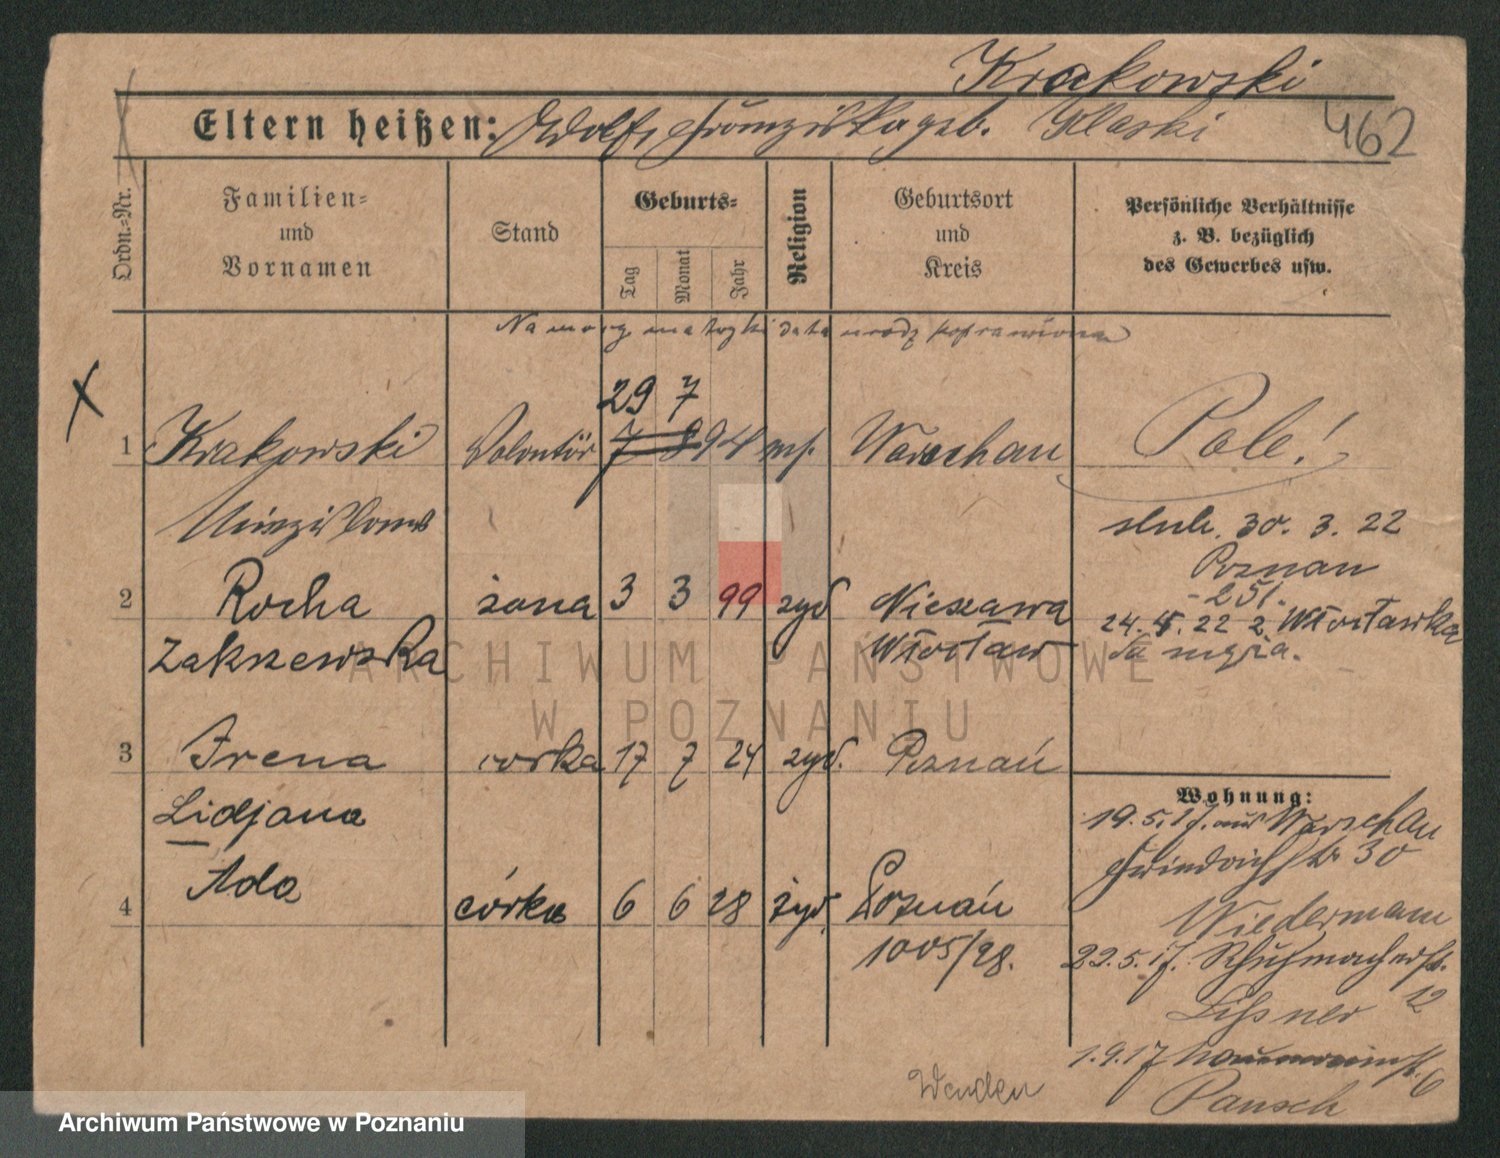 Krakowski
Eltern heißen: Adolf, Franziska geb. Kleski
462
Ordn.-Nr.
Familien-
und
Vornamen
Stand
Geburts-
Tag
Monat
Jahr
Religion
Geburtsort
und
Kreis
Persönliche Verhältnisse
z. B. bezüglich
des Gewerbes usw.
Na mocy metryki data urodz poprawiona
29 7
1 Krakowski Volontär 7 8 94 mos. Warschau Pole!
Miezislaus
ślub. 30. 3. 22
Poznan
251.
2 Rocha żona 3 3 99 żyd Nieszawa
24. 4. 22 z Włocławka
Zakrzewska Włocław
3 Irena corka 17 7 24 żyd. Poznań
Lidjana
Ada
4 córka 6 6 28 żyd. Poznań
1005/28.
Wohnung:
19.5.17. aus Warschau
Friedrichstr 30
Wiedermann
22.5.17. Schuhmacherstr.
12
Lissner
1.9.17 6
Pansch
Wenden
ARCHIWUM PAŃSTWOWE
W POZNANIU
Archiwum Państwowe w Poznaniu